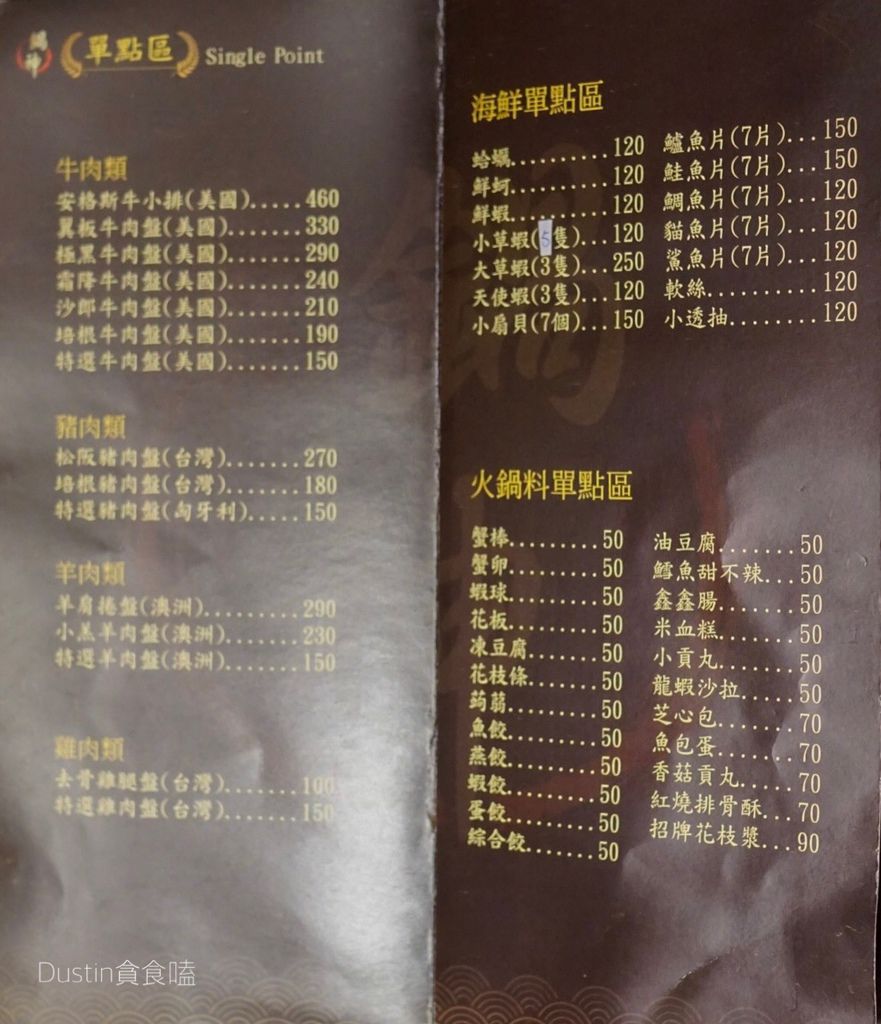 鍋神 單點區 Single Point
牛肉類
安格斯牛小排(美國).....460
翼板牛肉盤(美國).......330
極黑牛肉盤(美國).......290
霜降牛肉盤(美國).......240
沙郎牛肉盤(美國).......210
培根牛肉盤(美國).......190
特選牛肉盤(美國).......150
豬肉類
松阪豬肉盤(台灣).......270
培根豬肉盤(台灣).......180
特選豬肉盤(匈牙利).....150
羊肉類
羊肩捲盤(澳洲).........290
小羔羊肉盤(澳洲).......230
特選羊肉盤(澳洲).......150
雞肉類
去骨雞腿盤(台灣).......100
特選雞肉盤(台灣).......150
海鮮單點區
蛤蠣..........120
鮮蚵..........120
鮮蝦..........120
小草蝦(5隻)...120
大草蝦(3隻)...250
天使蝦(3隻)...120
小扇貝(7個)...150
鱸魚片(7片)...150
鮭魚片(7片)...150
鯛魚片(7片)...120
貓魚片(7片)...120
鯊魚片(7片)...120
軟絲..........120
小透抽........120
火鍋料單點區
蟹棒.........50
蟹卵.........50
蝦球.........50
花板.........50
凍豆腐.......50
花枝條.......50
蒟蒻.........50
魚餃.........50
燕餃.........50
蝦餃.........50
蛋餃.........50
綜合餃.......50
油豆腐.......50
鱈魚甜不辣...50
鑫鑫腸.......50
米血糕.......50
小貢丸.......50
龍蝦沙拉.....50
芝心包.......70
魚包蛋.......70
香菇貢丸.....70
紅燒排骨酥...70
招牌花枝漿...90
Dustin貪食嗑